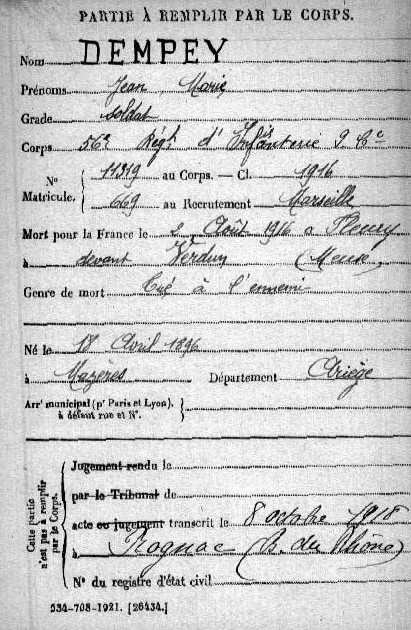 PARTIE À REMPLIR PAR LE CORPS.
Nom DEMPEY
Prénoms Jean Marie
Grade soldat
Corps 56e Régt d'Infanterie 9 Cie
No 11319 au Corps. — Cl. 1916
Matricule. 669 au Recrutement Marseille
Mort pour la France le 2 Août 1916 à Fleury
à devant Verdun (Meuse)
Genre de mort Tué à l'ennemi
Né le 18 Avril 1896
à Mazères Département Ariège
Arrt municipal (pr Paris et Lyon),
à défaut rue et N°.
Cette partie
n'est pas à remplir
par le Corps.
Jugement rendu le
par le Tribunal de
acte ou jugement transcrit le 8 octobre 1918
à Rognac (B. du Rhône)
N° du registre d'état civil
534-708-1921. [26434.]